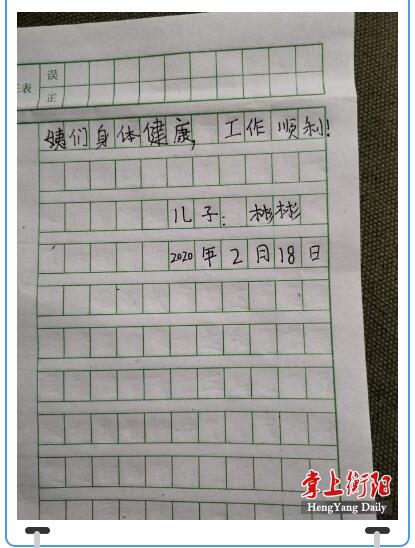 正表
误
正
姨们身体健康,工作顺利!
儿子:彬彬
2020年2月18日
掌上衡阳
HengYang Daily